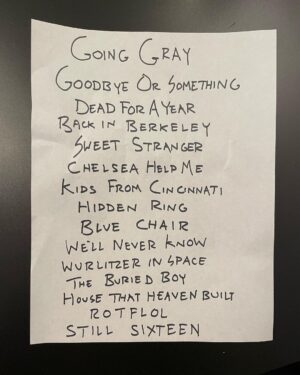 GOING GRAY
GOODBYE OR SOMETHING
DEAD FOR A YEAR
BACK IN BERKELEY
SWEET STRANGER
CHELSEA HELP ME
KIDS FROM CINCINNATI
HIDDEN RING
BLUE CHAIR
WE'LL NEVER KNOW
WURLITZER IN SPACE
THE BURIED BOY
HOUSE THAT HEAVEN BUILT
ROTFLOL
STILL SIXTEEN